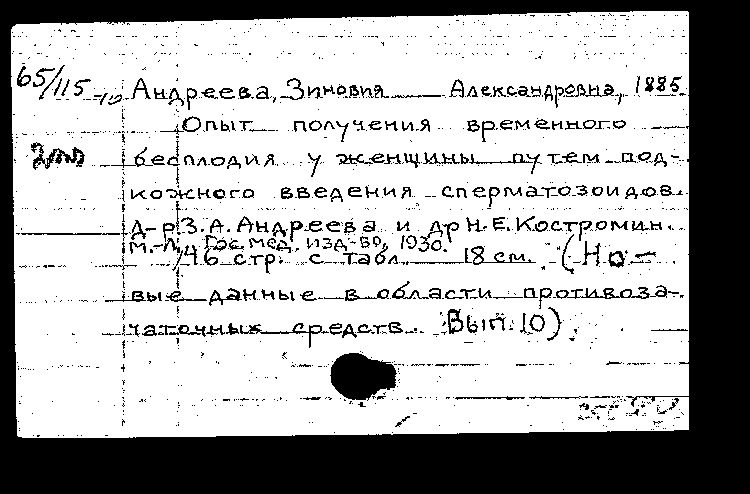 65/115-10 Андреева, Зиновия Александровна, 1885
Опыт получения временного
бесплодия у женщины путем под-
кожного введения сперматозоидов.
Д-р З. А. Андреева и др Н. Е. Костромин.
М.-Л. Гос. мед. изд-во, 1930.
46 стр. с табл. 18 см. (Но-
вые данные в области противоза-
чаточных средств. Вып. 10).